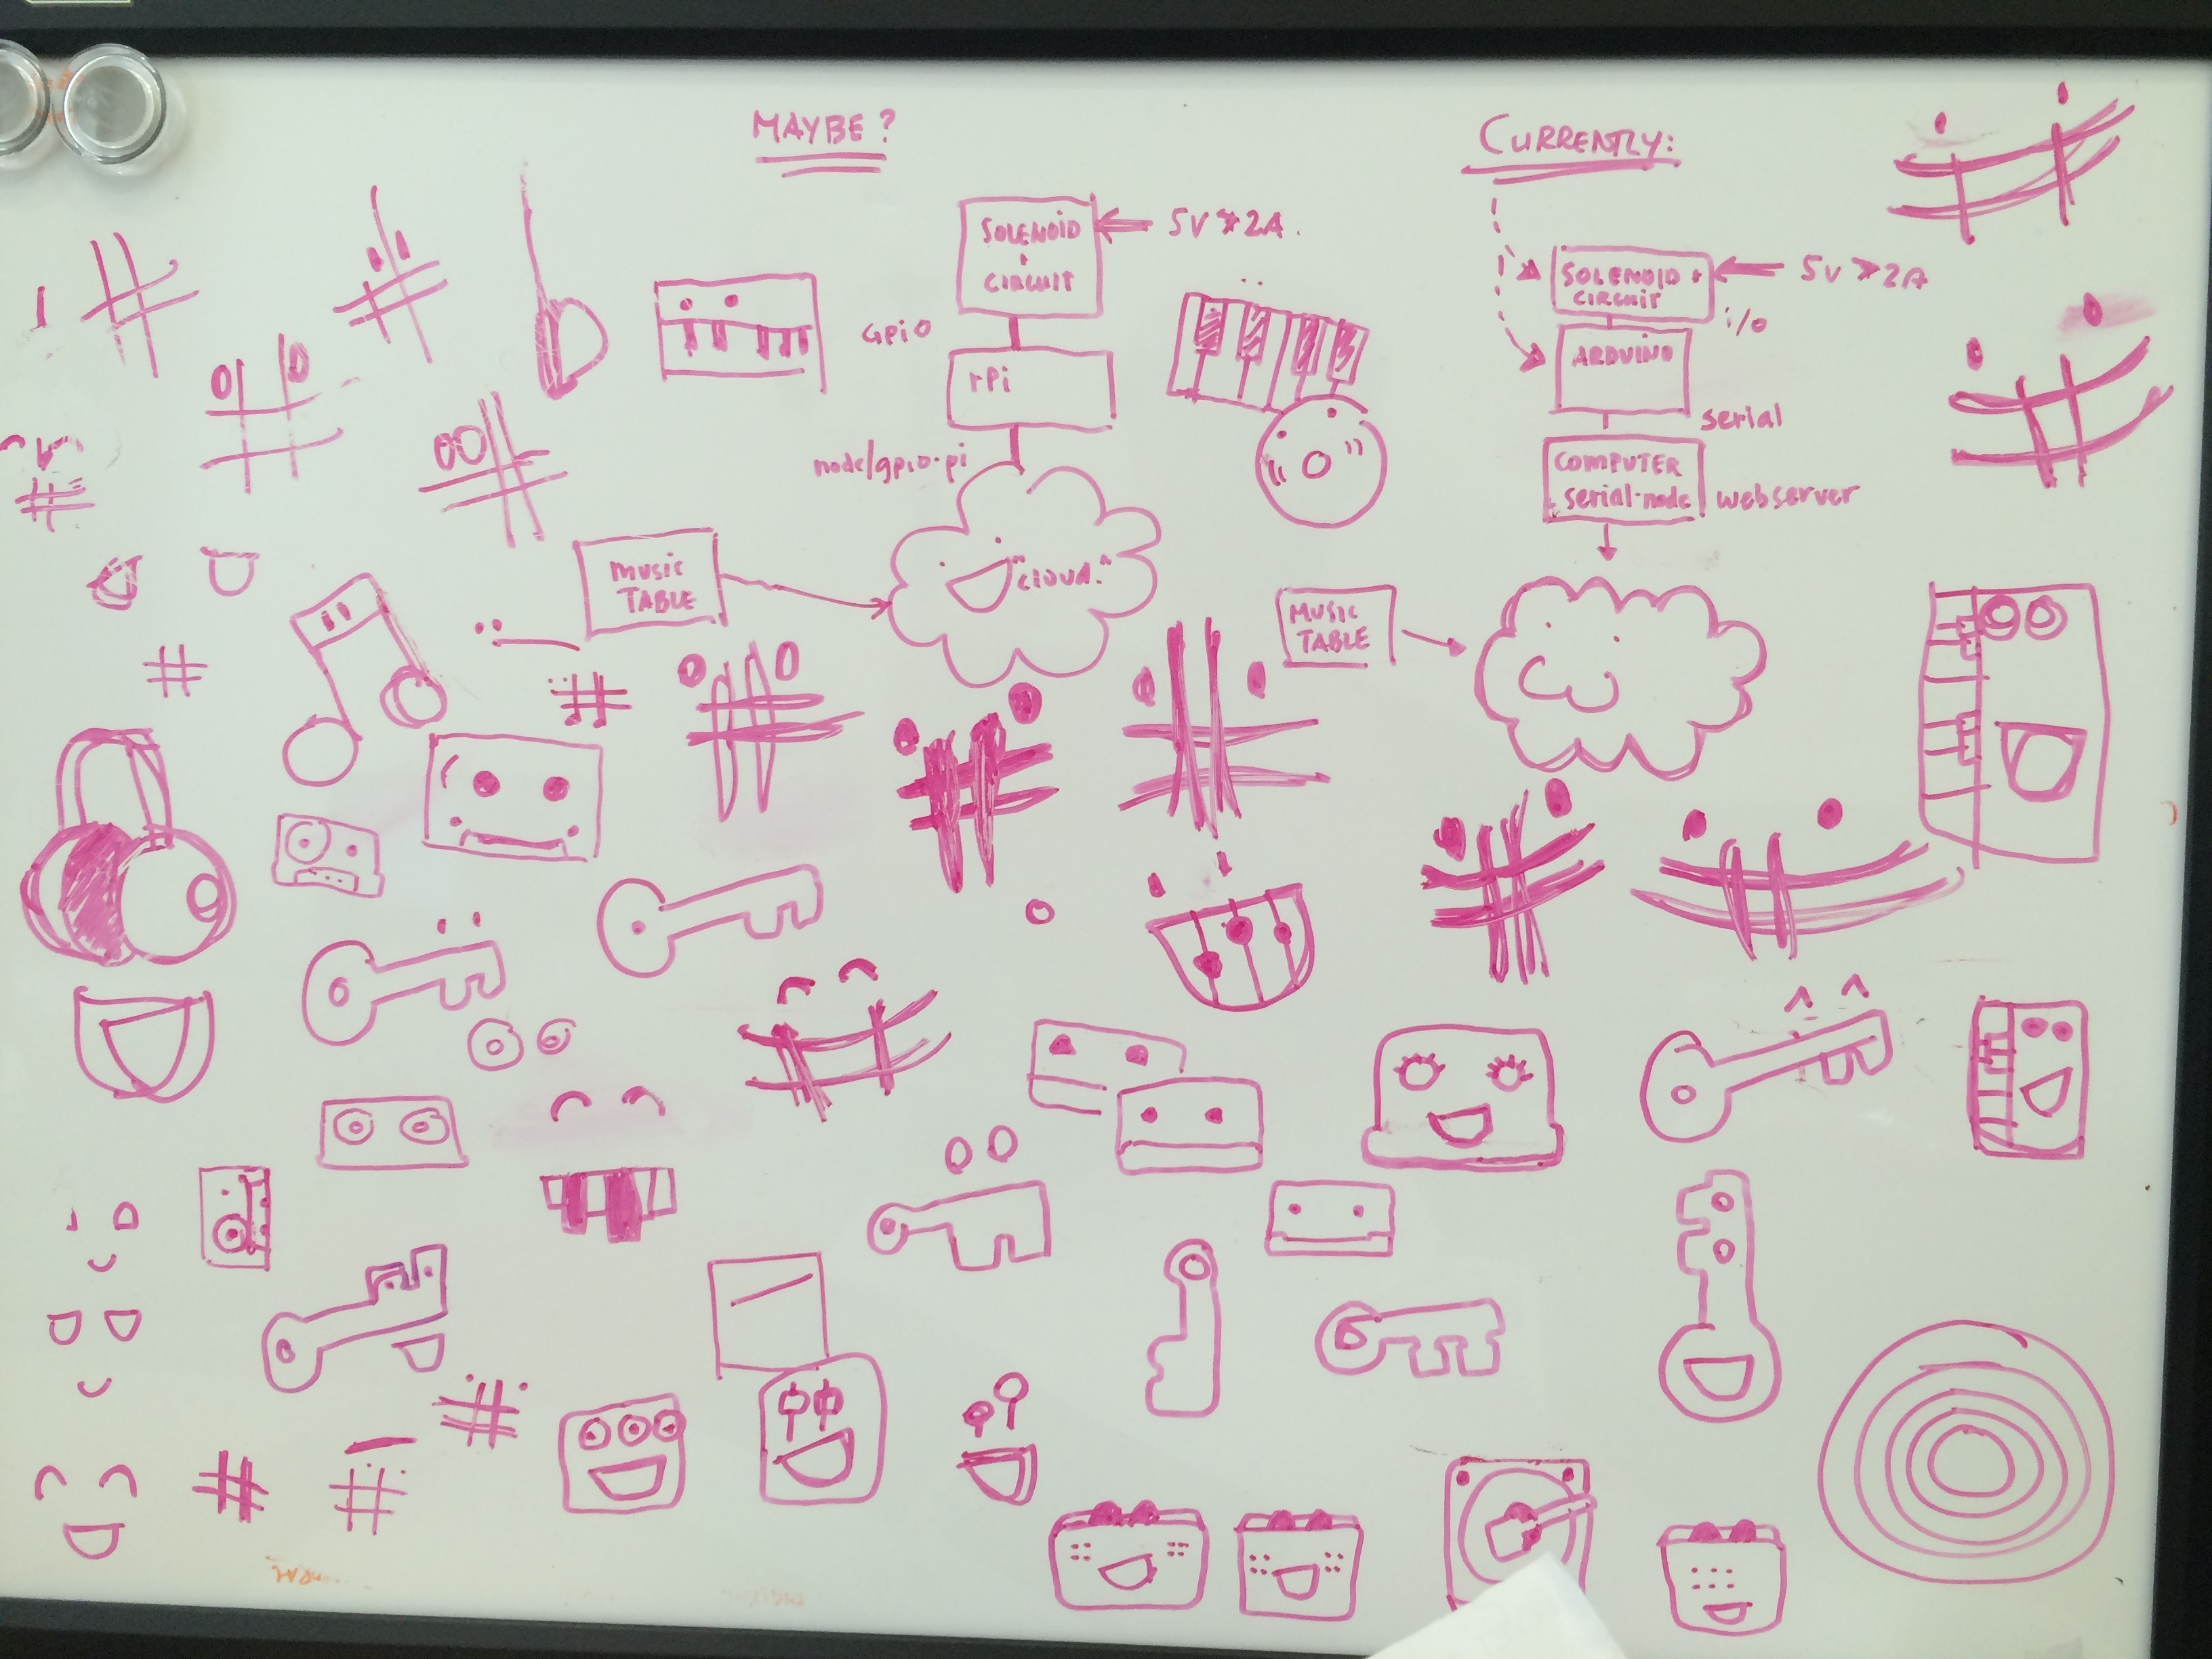 MAYBE?
SOLENOID
+
CIRCUIT
5V 2A.
GPiO
rPi
node/gpio-pi
MUSIC
TABLE
"CLOUD."
CURRENTLY:
SOLENOID +
CIRCUIT
5V 2A
i/o
ARDUINO
serial
COMPUTER
serial-node
webserver
MUSIC
TABLE